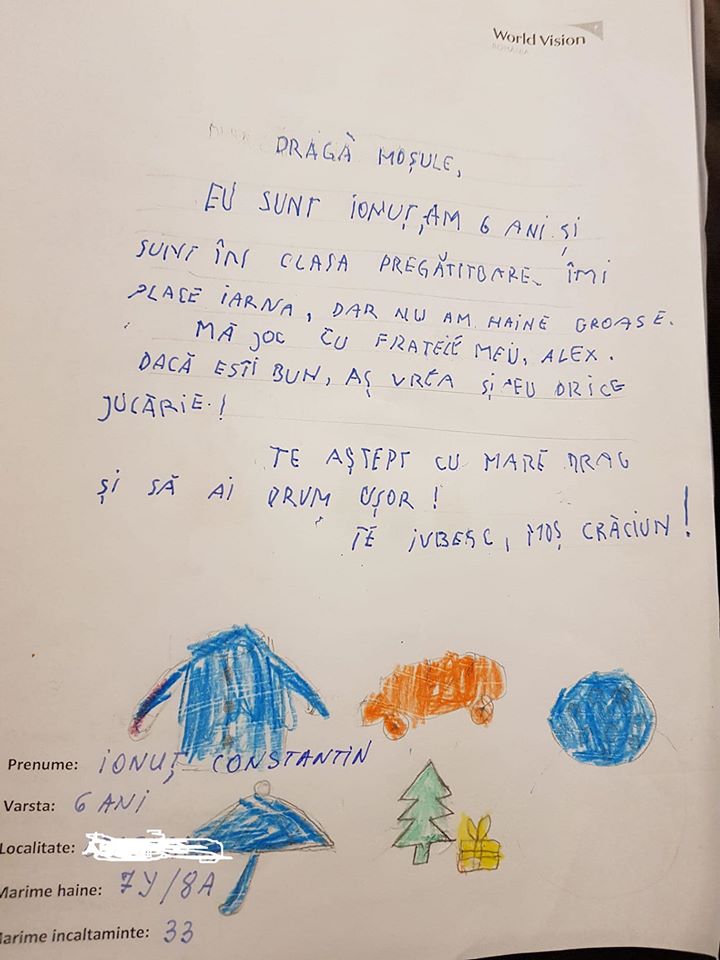 World Vision
ROMANIA
DRAGĂ MOȘULE,
EU SUNT IONUȚ, AM 6 ANI ȘI
SUNT ÎN CLASA PREGĂTITOARE. ÎMI
PLACE IARNA, DAR NU AM HAINE GROASE.
MĂ JOC CU FRATELE MEU, ALEX.
DACĂ EȘTI BUN, AȘ VREA ȘI EU ORICE
JUCĂRIE!
TE AȘTEPT CU MARE DRAG
ȘI SĂ AI DRUM UȘOR!
TE IUBESC, MOȘ CRĂCIUN!
Prenume: IONUȚ - CONSTANTIN
Varsta: 6 ANI
Localitate:
Marime haine: 7Y/8A
Marime incaltaminte: 33